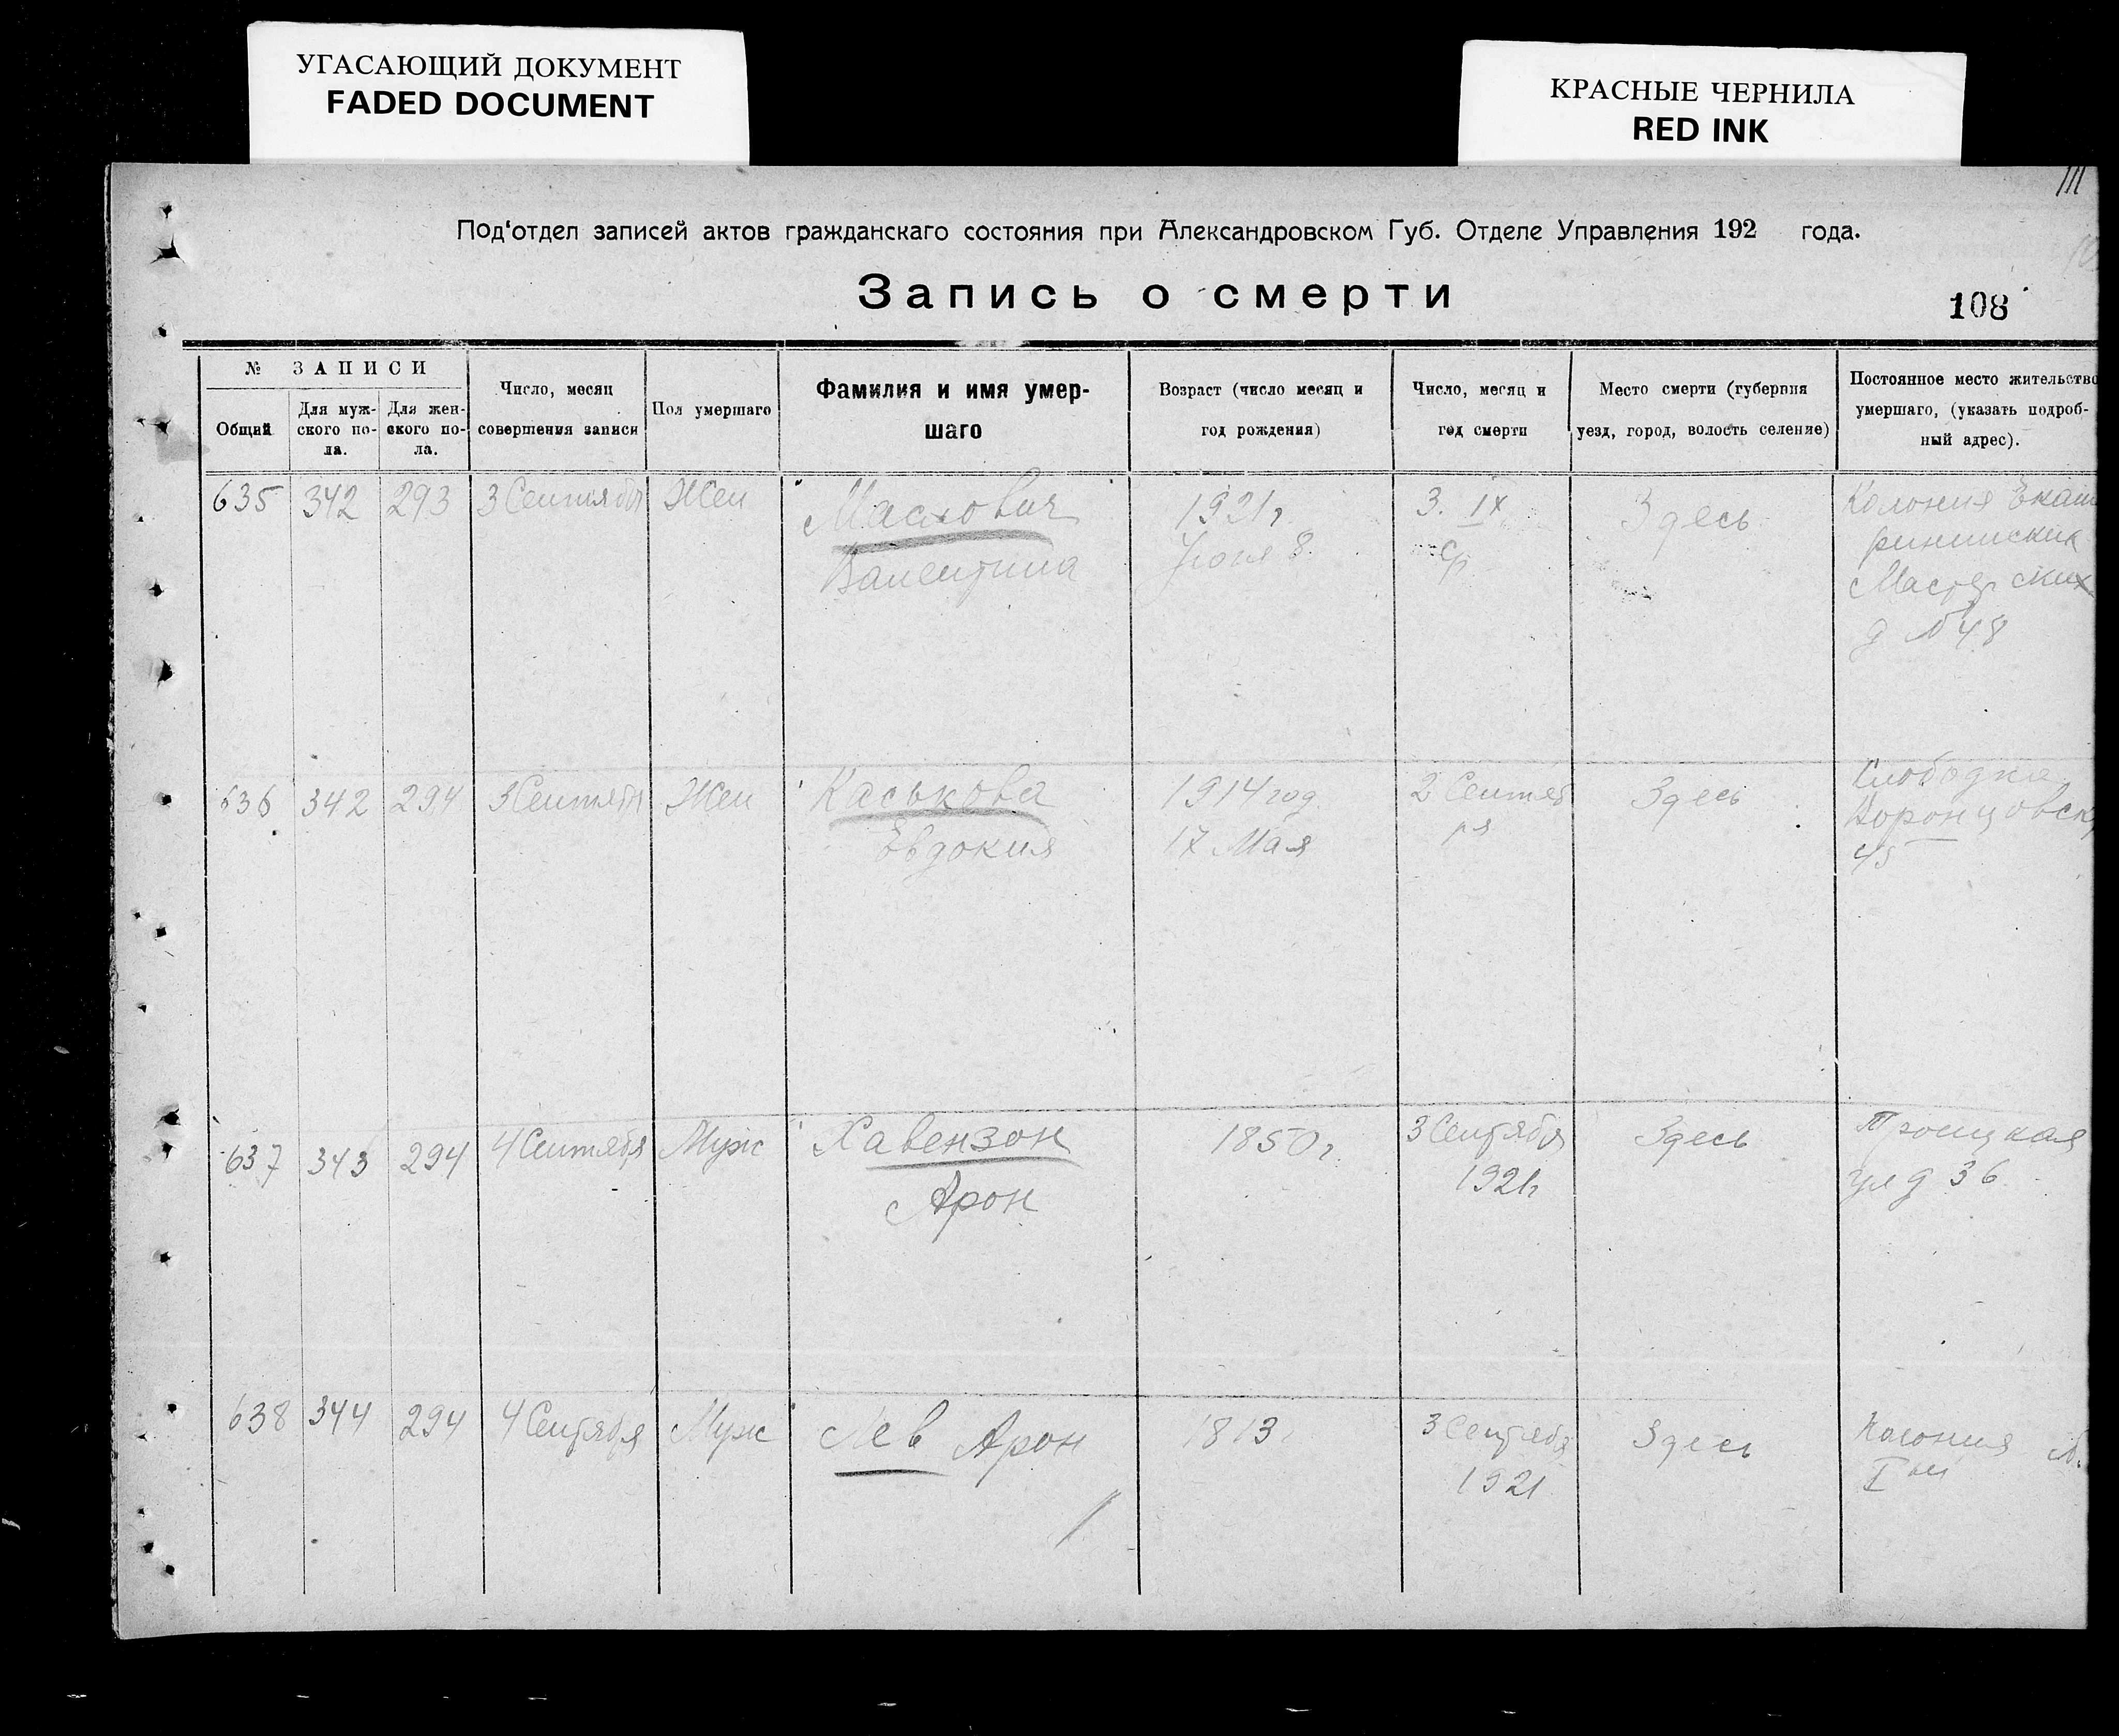 УГАСАЮЩИЙ ДОКУМЕНТ
FADED DOCUMENT
КРАСНЫЕ ЧЕРНИЛА
RED INK
Под‘отдел записей актов гражданскаго состояния при Александровском Губ. Отделе Управления 192 года.
Запись о смерти
108
№ ЗАПИСИ
Общий
Для муж-
ского по-
ла.
Для жен-
ского по-
ла.
Число, месяц
совершения записи
Пол умершаго
Фамилия и имя умер-
шаго
Возраст (число месяц и
год рождения)
Число, месяц и
год смерти
Место смерти (губерния
уезд, город, волость селение)
Постоянное место жительство
умершаго, (указать подроб-
ный адрес).
635 342 293 3 Сентября Жен
Валентина
1921г
Июня 8.
3. IX
Здесь
Колония Екат
Мастерских
д № 48
636 342 294 3 Сентября Жен
Каськова
Евдокия
1914 год
17 Мая
2 Сентяб
ря
Здесь
Слободка
Воронцовск
45
637 343 294 4 Сентября Муж
Хавензон
Арон
1850г.
3 Сентября
1921г
Здесь
Троицкая
ул д 36
638 344 294 4 Сентября Муж
Лев Арон
1813.
3 Сентября
1921
Здесь
Колония